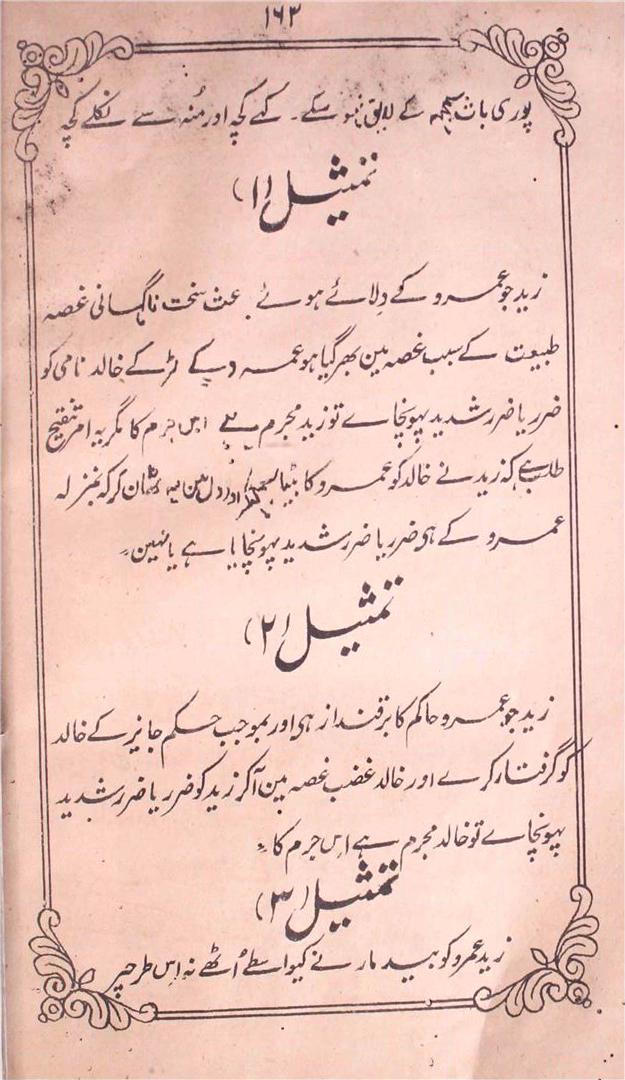 ۱۶۳
پوری بات سمجھ کے لایق نہو سکے ۔ کہے کچہ اور مُنہ سے نکلے کچہ
تمثیل (۱)
زید جو عمرو کے دلائے ہوئے سخت ناگہانی غصہ
طبیعت کے سبب غصہ مین بھر گیا ہو عمرو کے لڑکے خالد نامی کو
ضرر یا ضرر شدید پہونچاے تو زید مجرم ہے اس جرم کا مگر یہ امر تنقیح
طلب ہے کہ زید نے خالد کو عمرو کا بیٹا سمجھکر اور دل مین یہ ٹھان کر کہ بمنزلہ
عمرو کے ہی ضرر یا ضرر شدید پہونچایا ہے یا نہین ۔
تمثیل (۲)
زید جو عمرو حاکم کا برقنداز ہی اور بموجب حکم جایز کے خالد
کو گرفتار کرے اور خالد غضب غصہ مین آکر زید کو ضرر یا ضرر شدید
پہونچاے تو خالد مجرم ہے اس جرم کا ۔
تمثیل (۳)
زید عمرو کو بید مارنے کیواسطے اُٹھے نہ اس طرحپر